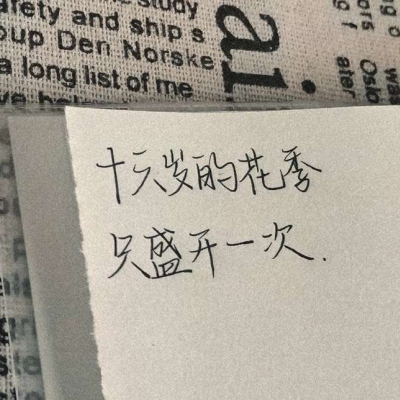 afety and ship s
oup Den Norske
a long list of me
al.
ors
Oslo
ater
十六岁的花季
只盛开一次.